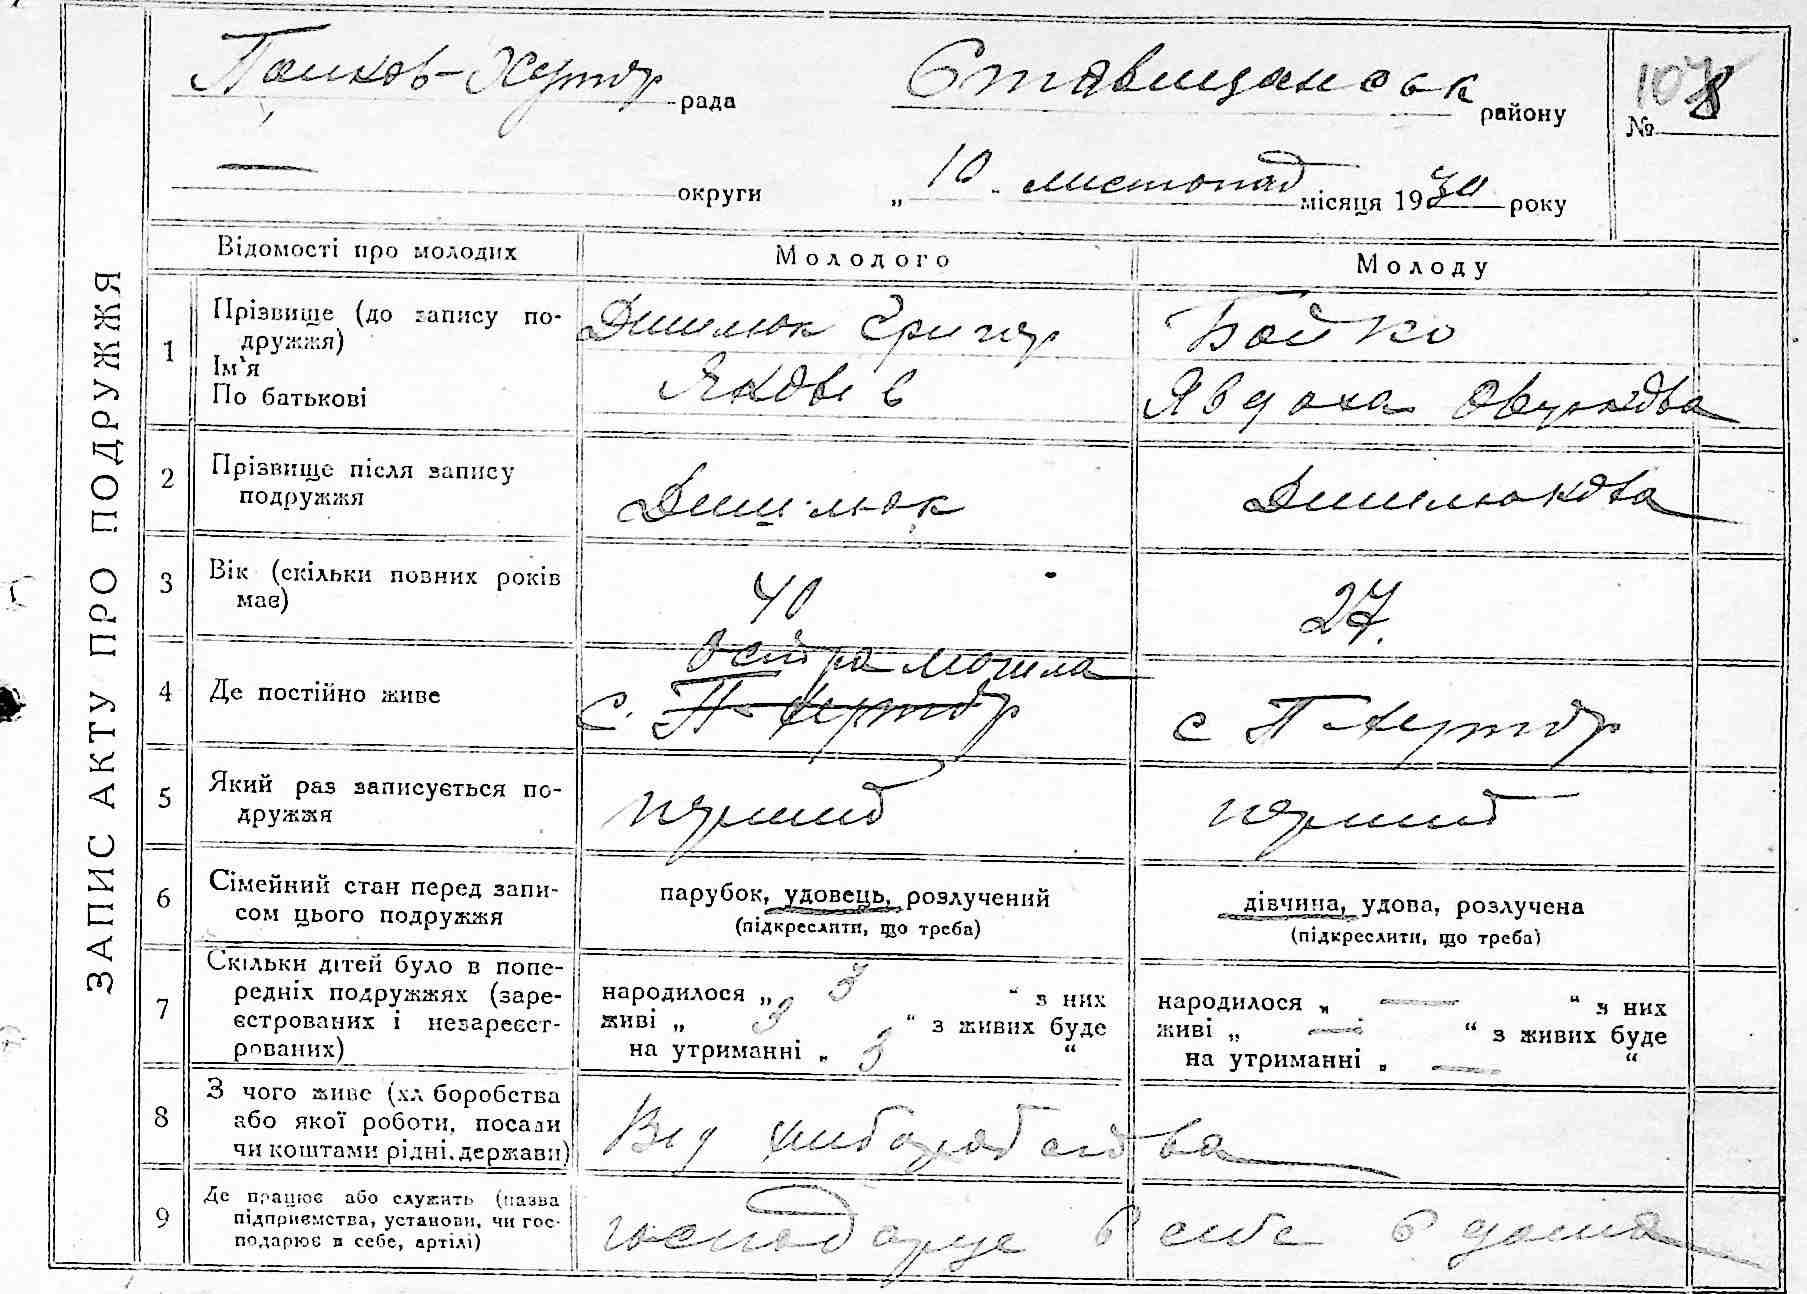 ЗАПИС АКТУ ПРО ПОДРУЖЖЯ
Ставищанськ району
рада
№ 8
округи „ 10 „ листопад місяця 1930 року
Відомості про молодих Молодого Молоду
1 Прізвище (до запису подружжя) Ім'я По батькові
Григор
Яковлев
Бойко
Явдоха
2 Прізвище після запису подружжя
3 Вік (скільки повних років має) 40 27.
4 Де постійно живе
Остра могила
с. П-Хутор
с П-Хутор
5 Який раз записується подружжя
6 Сімейний стан перед записом цього подружжя
парубок, удовець, розлучений
(підкреслити, що треба)
дівчина, удова, розлучена
(підкреслити, що треба)
7 Скільки дітей було в попередніх подружжях (зареєстрованих і незареєстрованих)
народилося „ 3 “ з них
живі „ 3 “ з живих буде
на утриманні „ 3 “
народилося „ — “ з них
живі „ — “ з живих буде
на утриманні „ — “
8 З чого живе (хліборобства або якої роботи, посади чи коштами рідні, держави)
Від хліборобства
9 Де працює або служить (назва підприємства, установи, чи господарює в себе, артілі)
господарує в себе в дома